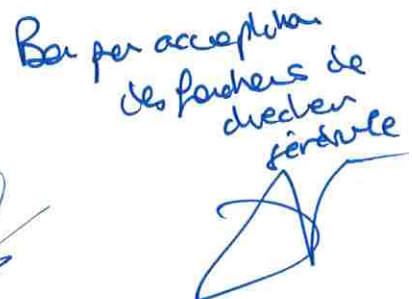 Bon pour acceptation
des fonctions de
directeur
générale